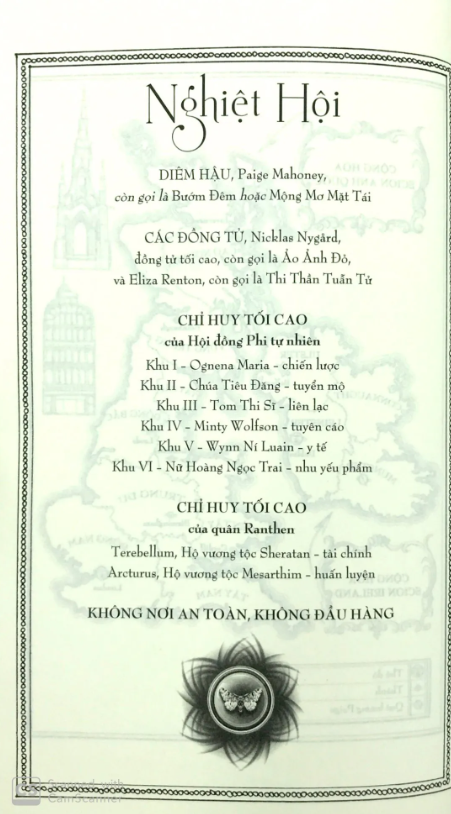 Nghiệt Hội
DIÊM HẬU, Paige Mahoney,
còn gọi là Bướm Đêm hoặc Mộng Mơ Mặt Tái
CÁC ĐỒNG TỬ, Nicklas Nygård,
đồng tử tối cao, còn gọi là Ảo Ảnh Đỏ,
và Eliza Renton, còn gọi là Thi Thần Tuẫn Tử
CHỈ HUY TỐI CAO
của Hội đồng Phi tự nhiên
Khu I - Ognena Maria - chiến lược
Khu II - Chúa Tiêu Đăng - tuyển mộ
Khu III - Tom Thi Sĩ - liên lạc
Khu IV - Minty Wolfson - tuyên cáo
Khu V - Wynn Ní Luain - y tế
Khu VI - Nữ Hoàng Ngọc Trai - nhu yếu phẩm
CHỈ HUY TỐI CAO
của quân Ranthen
Terebellum, Hộ vương tộc Sheratan - tài chính
Arcturus, Hộ vương tộc Mesarthim - huấn luyện
KHÔNG NƠI AN TOÀN, KHÔNG ĐẦU HÀNG
CS Scanned with
CamScanner